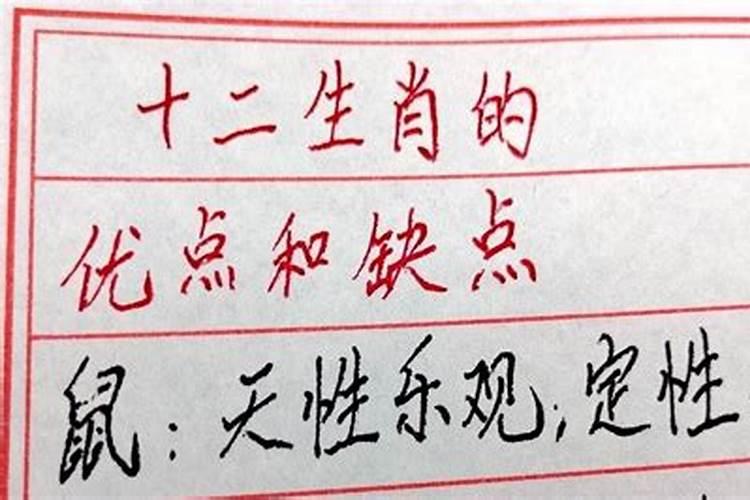 十二生肖的
优点和缺点
鼠：天性乐观；定性